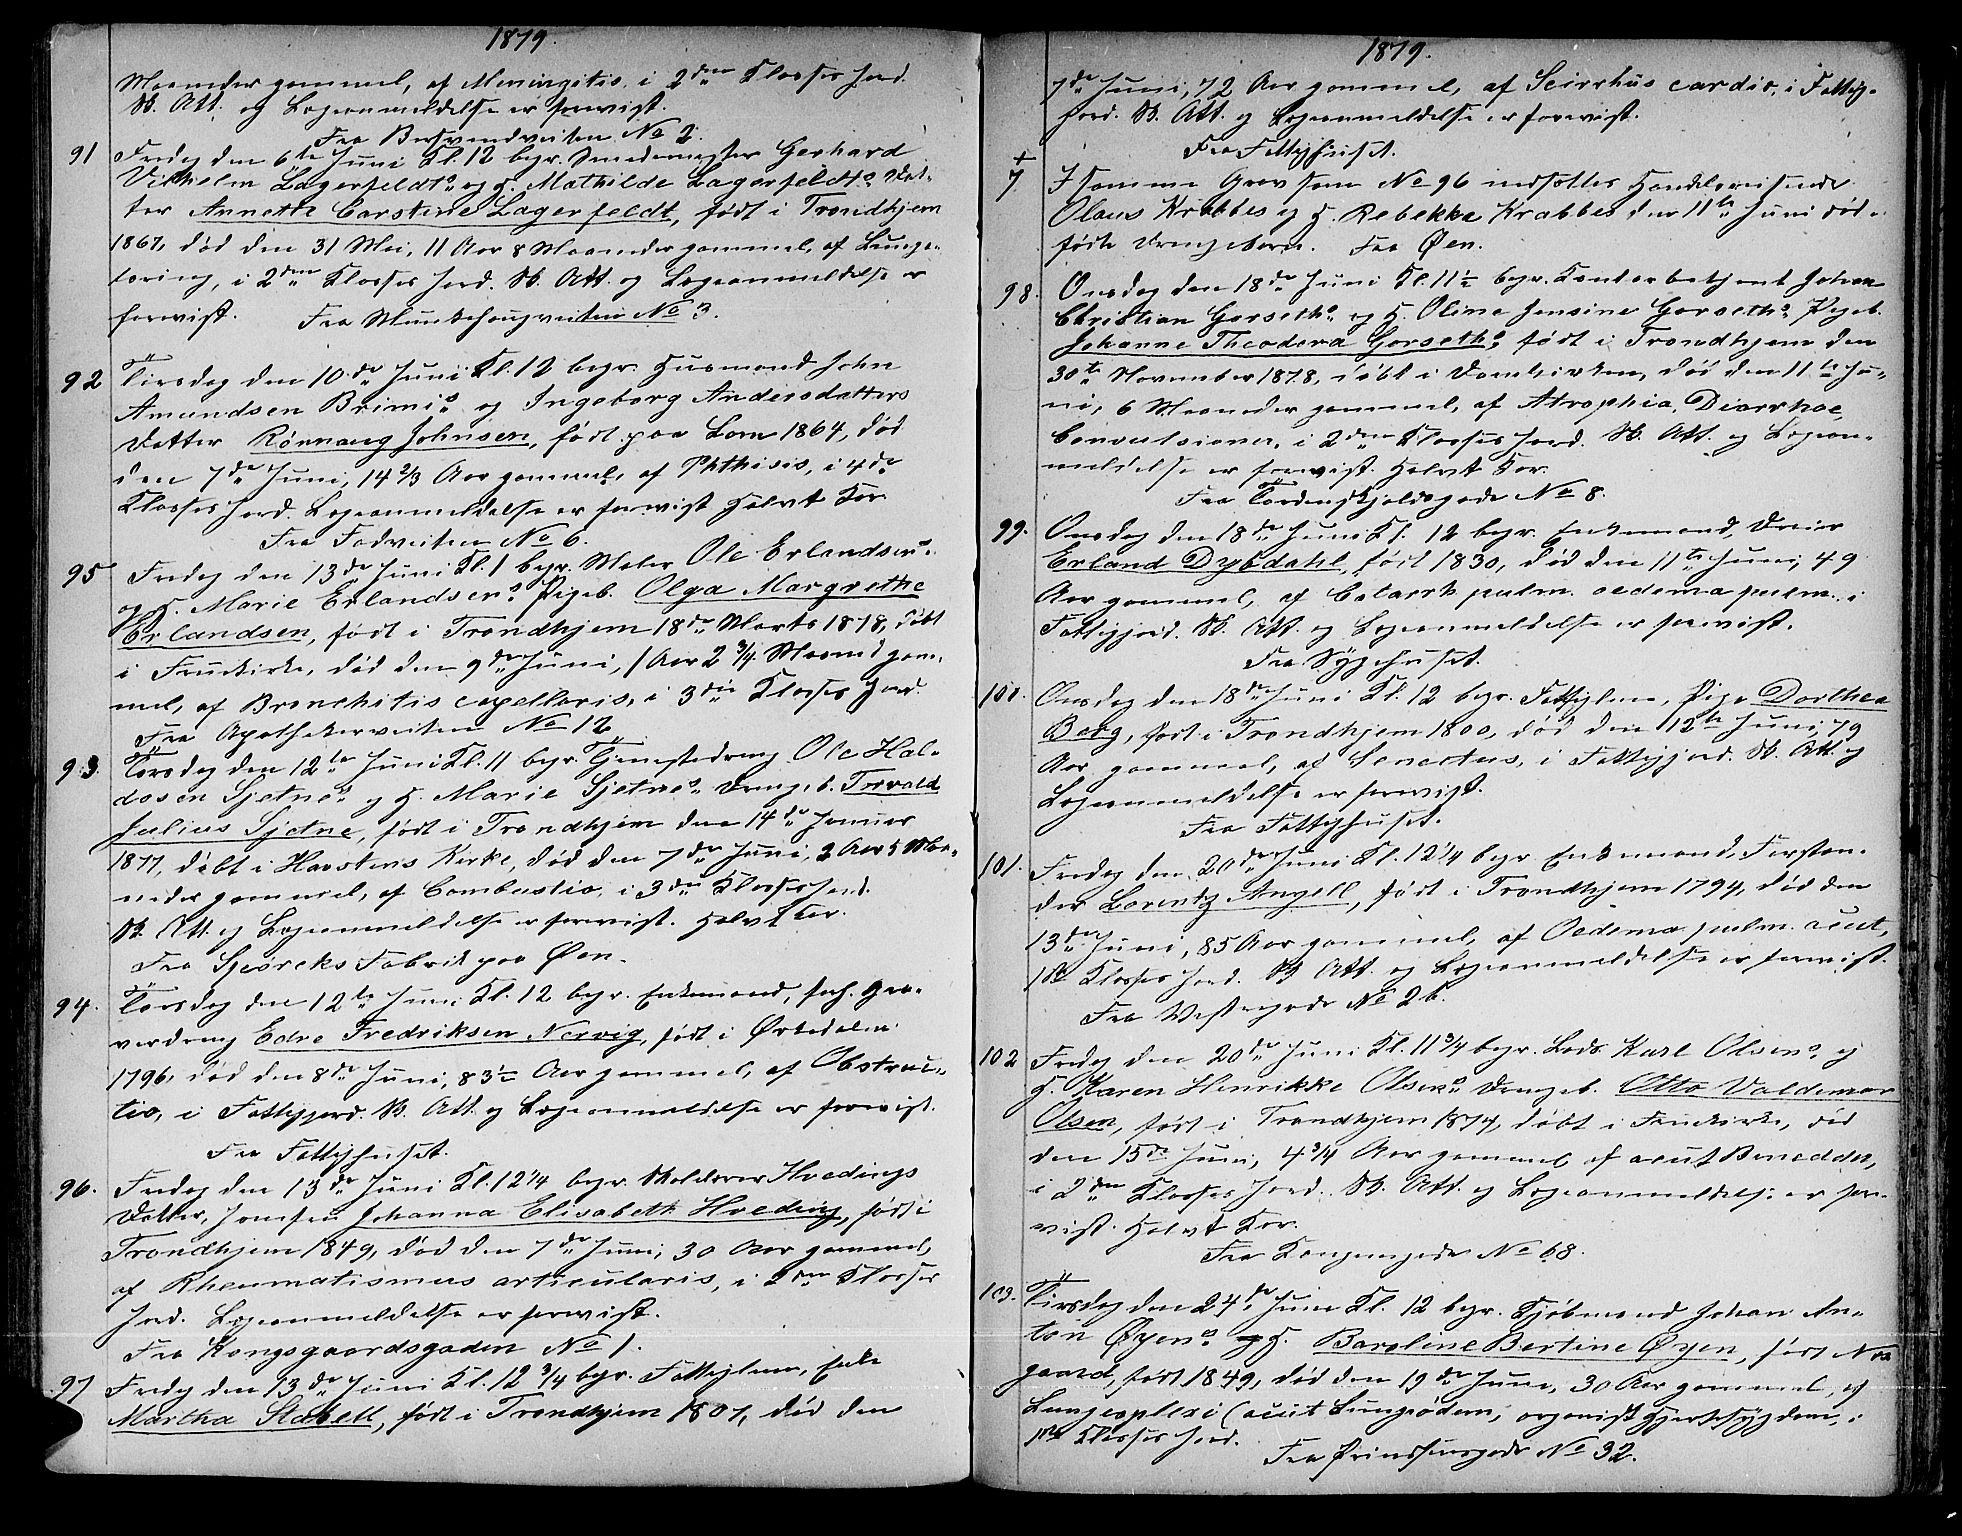 1879.
Maaneder gammel, af Meningitis, i 2den Klasses Jord.
Sk. Att. og Lægeanmeldelse er forevist.
Fra Bersvendveiten No 2.
91 Fredag den 6te Juni Kl. 12 begr. Smedemester Gerhard
Vilhelm Lagerfeldts og H. Mathilde Lagerfeldts Dat-
ter Annette Carstine Lagerfeldt, født i Trondhjem
1867, død den 31 Mai, 11 Aar 8 Maaneder gammel, af Lunge-
tæring, i 2den Klasses Jord. Sk. Att. og Lægeanmeldelse er
forevist. Fra Munkhaugveiten No 3.
92 Tirsdag den 10de Juni Kl. 12 begr. Husmand John
Amundsen Brimis og Ingeborg Andersdatters
Datter Rønnaug Johnsen, født paa Lom 1864, død
den 7de Juni, 14 2/3 Aar gammel, af Phthisis, i 4de
Klasses Jord. Lægeanmeldelse er forevist Halvt Kor
Fra Fadveiten No 6.
95 Fredag den 13de Juni Kl. 1 begr. Maler Ole Erlandsens
og H. Marie Erlandsens Pigeb. Olga Margrethe
Erlandsen, født i Trondhjem 18de Marts 1878, døbt
i Fruekirke, død den 9de Juni, 1 Aar 2 3/4 Maaned gam-
mel, af Bronchitis capellaris, i 3die Klasses Jord.
Fra Apothekerveiten No 12
93. Torsdag den 12te Juni Kl. 11 begr. Tjenestedreng Ole Hal-
dosen Sjetnes og H. Marie Sjetnes Drengeb. Torvald
Julius Sjetne, født i Trondhjem den 14de Januar
1877, døbt i Havstens Kirke, død den 7de Juni, 2 Aar 5 Maa-
neder gammel, af Combustio, i 3die Klasses Jord.
Sk. Att. og Lægeanmeldelse er forevist. Halvt Kor.
Fra Fabrik paa Øen.
94. Torsdag den 12te Juni Kl. 12 begr. Enkemand, forh.
Edre Fredriksen Nervig, født i Ørkedalen
1796, død den 8de Juni, 83 1/2 Aar gammel, af Obstruc-
tio, i Fattigjord. Sk. Att. og Lægeanmeldelse er forevist.
Fra Fattighuset.
96. Fredag den 13de Juni Kl. 12 1/4 begr. Hvedings
Datter, Jomfru Johanna Elisabeth Hveding, født i
Trondhjem 1849, død den 7de Juni, 30 Aar gammel,
af Rheumatismus articularis, i 2den Klasses
Jord. Lægeanmeldelse er forevist.
Fra Kongsgaardsgaden No 1.
97 Fredag den 13de Juni Kl. 12 3/4 begr. Fattiglem, Enke
Martha Stabell, født i Trondhjem 1807, død den
1879.
7de Juni, 72 Aar gammel, af Scirrhus cardia, i Fattig-
jord. Sk. Att. og Lægeanmeldelse er forevist.
Fra Fattighuset.
+
7 I samme Grav som No 96 nedsattes Handelsreisende
Olaus Krabbes og H. Rebekka Krabbes den 11te Juni død-
fødte Drengebarn. Fra Øen.
98. Onsdag den 18de Juni Kl. 11 1/2 begr. Kontorbetjent Johan
Christian Gorseths og H. Oline Jensine Gorseths Pigeb.
Johanne Theodora Gorseth, født i Trondhjem den
30te November 1878, døbt i Domkirken, død den 11te Ju-
ni, 6 Maaneder gammel, af Atrophia, Diarrhoe,
Convulsioner, i 2den Klasses Jord. Sk. Att. og Lægean-
meldelse er forevist. Halvt Kor.
Fra Tordenskjoldsgade No 8.
99. Onsdag den 18de Juni Kl. 12 begr. Enkemand, Dreier
Erland Dybdahl, født 1830, død den 11te Juni, 49
Aar gammel, af Catarrh pulm. oedema pulm. i
Fattigjord. Sk. Att. og Lægeanmeldelse er forevist.
Fra Sygehuset.
100. Onsdag den 18de Juni Kl. 12 begr. Fattiglem, Pige Dorthea
Berg, født i Trondhjem 1800, død den 12te Juni, 79
Aar gammel, af Senectus, i Fattigjord. Sk. Att. og
Lægeanmeldelse er forevist.
Fra Fattighuset.
101. Fredag den 20de Juni Kl. 12 1/4 begr. Enkemand, Forstan-
der Lorentz Angell, født i Trondhjem 1794, død den
13de Juni, 85 Aar gammel, af Oedema pulm. acut,
1ste Klasses Jord. Sk. Att. og Lægeanmeldelse er forevist.
Fra Westergade No 26.
102 Fredag den 20de Juni Kl. 11 3/4 begr. Lods Karl Olsens og
H. Karen Henrikke Olsens Drengeb. Otto Valdemar
Olsen, født i Trondhjem 1874, døbt i Fruekirke, død
den 15de Juni, 4 3/4 Aar gammel af acut
i 2den Klasses Jord. Sk. Att. og Lægeanmeldelse er fore-
vist. Halvt Kor.
Fra Kongensgade No 68.
103. Tirsdag den 24de Juni Kl. 12 begr. Kjøbmand Johan An-
ton Øyens H. Baroline Bertine Øyen, født
gaard, født 1849, død den 19de Juni, 30 Aar gammel, af
Lungeaplexi (acut Lungeødem, organisk Hjertesygdom, i
1ste Klasses Jord.
Fra Prindsensgade No 32.